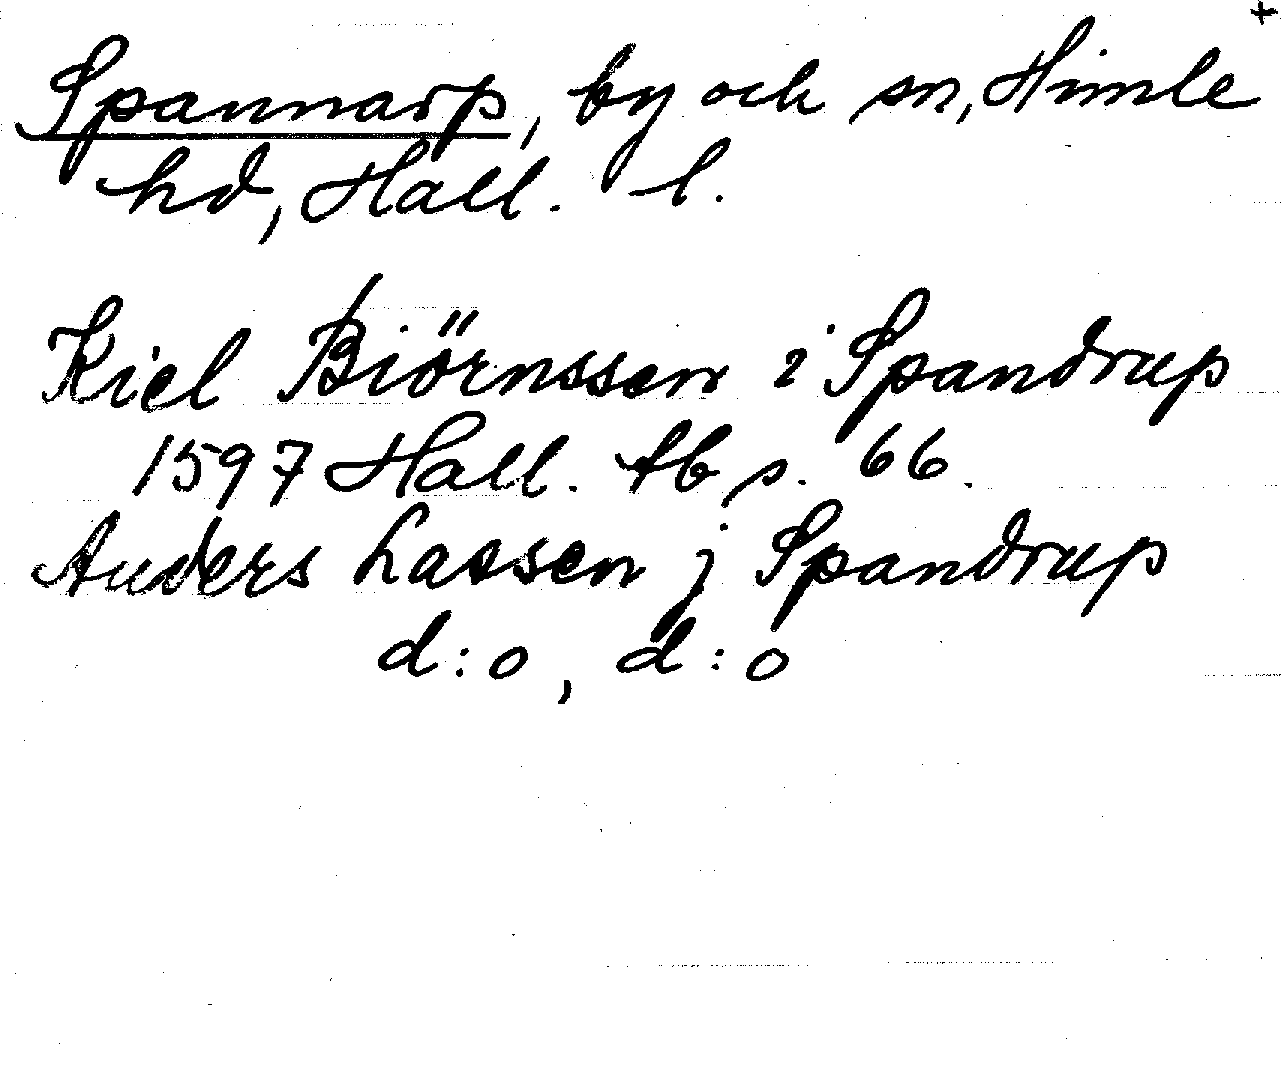 +
Spannarp, by och sn, Himle
hd, Hall. l.
Kiel Biörnssen i Spandrup
1597 Hall. tb s. 66.
Anders Lassen j Spandrup
d:o, d:o